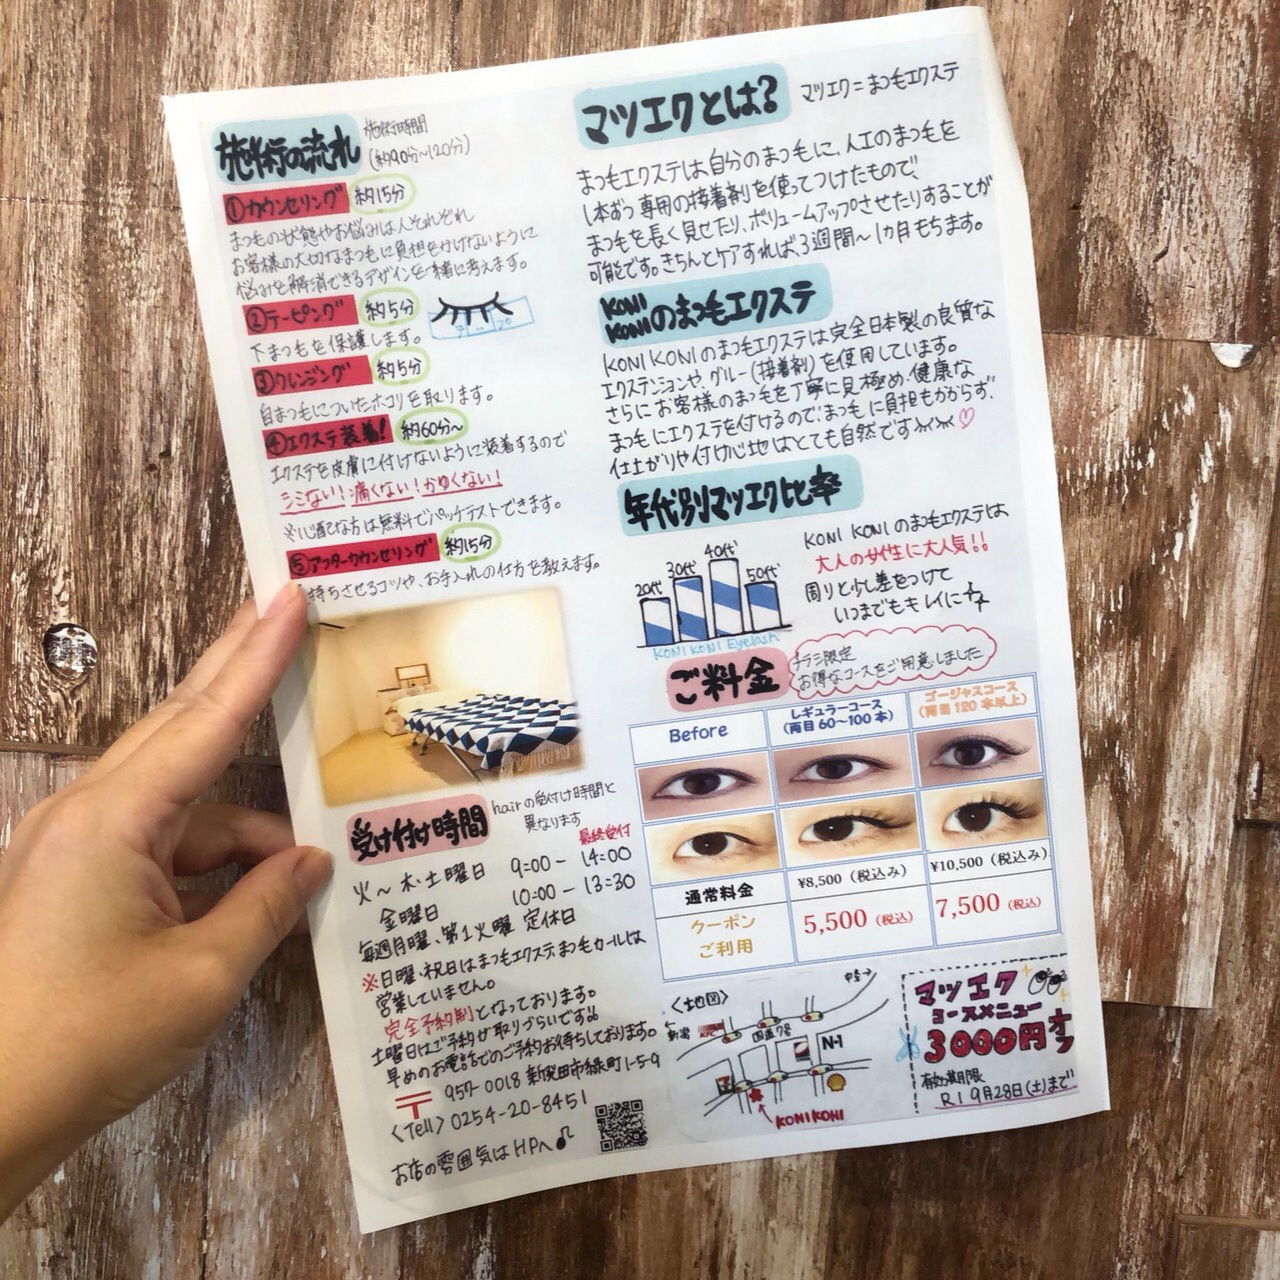 施術の流れ
施術時間
(約90分〜120分)
①カウンセリング 約15分
まつもの状態やお悩みは人それぞれ
お客様の大切なまつもに負担をかけないように
悩みを解消できるデザインを一緒に考えます。
②テーピング 約5分
テープ
下まつもを保護します。
③クレンジング 約5分
自まつもについたホコリを取ります。
④エクステ装着! 約60分〜
エクステを皮膚に付けないように装着するので
シミない!痛くない!かゆくない!
※心配な方は無料でパッチテストできます。
⑤アフターカウンセリング 約15分
持ちさせるコツや、お手入れの仕方を教えます。
受け付け時間
hairの受付け時間と
異なります
最終受付
火〜木・土曜日 9:00 - 14:00
金曜日 10:00 - 13:30
毎週月曜、第1火曜 定休日
※日曜・祝日はまつもエクステ、まつもカールは
営業していません。
完全予約制となっております。
土曜日はご予約が取りづらいです!!
早めのお電話でのご予約お待ちしております。
〒 957-0018 新発田市緑町1-5-9
〈Tell〉0254-20-8451
お店の雰囲気はHPへ♪
マツエクとは?
マツエク=まつもエクステ
まつもエクステは自分のまつもに、人工のまつもを
1本ずつ専用の接着剤を使ってつけたもので、
まつもを長く見せたり、ボリュームアップさせたりすることが
可能です。きちんとケアすれば、3週間〜1カ月もちます。
KONI KONIのまつもエクステ
KONI KONIのまつもエクステは完全日本製の良質な
エクステンションや、グルー(接着剤)を使用しています。
さらにお客様のまつもを丁寧に見極め、健康な
まつもにエクステを付けるので、まつもに負担もかからず、
仕上がりや付け心地はとても自然です♡
年代別マツエク比率
20代 30代 40代 50代
KONI KONI Eyelash
KONI KONIのまつもエクステは
大人の女性に大人気!!
周りと少し差をつけて
いつまでもキレイに
ご料金
チラシ限定
お得なコースをご用意しました
Before
レギュラーコース
(両目60〜100本)
ゴージャスコース
(両目120本以上)
通常料金 ¥8,500(税込み) ¥10,500(税込み)
クーポン
ご利用
5,500(税込) 7,500(税込)
〈地図〉
新潟
KFC
国道7号
中条
N-1
KONIKONI
マツエク
コースメニュー
3000円オフ
有効期限
R1 9月28日(土)まで